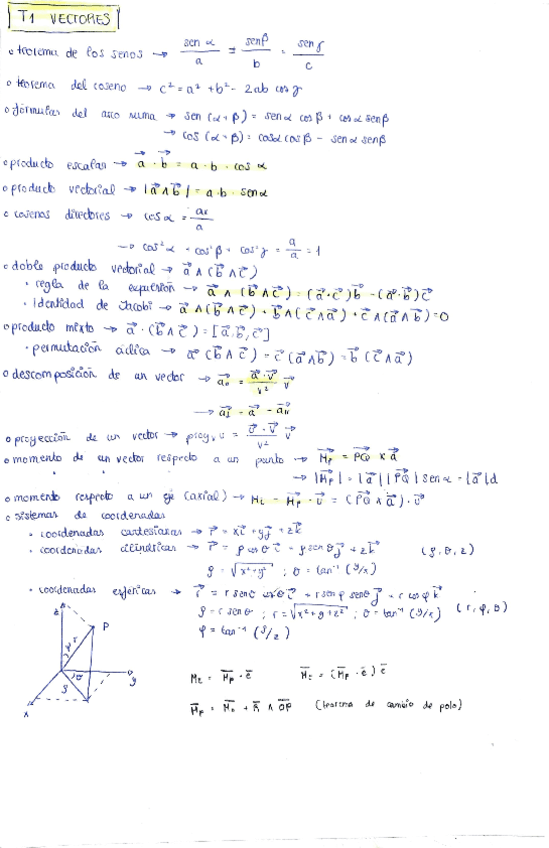 T1 VECTORES
o teorema de los senos → sen α / a = sen β / b = sen γ / c
o teorema del coseno → c² = a² + b² - 2ab cos γ
o fórmulas del arco suma → sen (α+β) = sen α cos β + cos α sen β
→ cos (α+β) = cos α cos β - sen α sen β
o producto escalar → a⃗ · b⃗ = a · b · cos α
o producto vectorial → |a⃗ ∧ b⃗| = a · b · sen α
o cosenos directores → cos α = ax / a
→ cos² α + cos² β + cos² γ = a / a = 1
o doble producto vectorial → a⃗ ∧ (b⃗ ∧ c⃗)
• regla de la expulsión → a⃗ ∧ (b⃗ ∧ c⃗) = (a⃗ · c⃗) b⃗ - (a⃗ · b⃗) c⃗
• Identidad de Jacobi → a⃗ ∧ (b⃗ ∧ c⃗) + b⃗ ∧ (c⃗ ∧ a⃗) + c⃗ ∧ (a⃗ ∧ b⃗) = 0
o producto mixto → a⃗ · (b⃗ ∧ c⃗) = [a⃗, b⃗, c⃗]
• permutación cíclica → a⃗ (b⃗ ∧ c⃗) = c⃗ (a⃗ ∧ b⃗) = b⃗ (c⃗ ∧ a⃗)
o descomposición de un vector → a⃗ₙ = a⃗ · v⃗ / v² v⃗
→ a⃗⊥ = a⃗ - a⃗ₙ
o proyección de un vector → proyᵥ u = u⃗ · v⃗ / v² v⃗
o momento de un vector respecto a un punto → M⃗p = PQ⃗ × a⃗
→ |M⃗p| = |a⃗| |PQ⃗| sen α = |a⃗| d
o momento respecto a un eje (axial) → ME = M⃗p · u⃗ = (PQ⃗ ∧ a⃗) · u⃗
o sistemas de coordenadas
• coordenadas cartesianas → r⃗ = xi⃗ + yj⃗ + zk⃗
• coordenadas cilíndricas → r⃗ = ρ cos θ i⃗ + ρ sen θ j⃗ + z k⃗ (ρ, θ, z)
ρ = √x² + y² ; θ = tan⁻¹ (y/x)
• coordenadas esféricas → r⃗ = r senθ cosθ i⃗ + r sen φ senθ j⃗ + r cos φ k⃗
ρ = r sen θ ; r = √x² + y + z² ; θ = tan⁻¹ (y/x) (r, φ, θ)
φ = tan⁻¹ (ρ/z)
z P
φ r
θ
ρ y
x
ME = M̄p · ē M̄E = (M̄p · ē) ē
M̄p = M̄o + R̄ ∧ OP (teorema de cambio de polo)